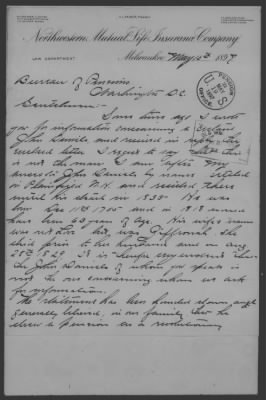 Northwestern Mutual Life Insurance Company
LAW DEPARTMENT
Milwaukee May 189
Bureau of Pensions
Washington D.C.
Gentlemen:
Some time ago I wrote
you for information concerning a certain
John Daniels and received in reply the
enclosed letter I regret to say that this
is not the man I am after. My
ancestor John Daniels by name settled
in Plainfield N.H. and resided there
until his death in 1838. He was
born Dec. 1755 and in 1818 would
have been 63 years of age. His wife's name
was not Lois but was She
died prior to her husband and on
29 1829. It is therefore evident that
the John Daniels of whom you speak is
not the one concerning whom we ask
for information.
The statement has been handed down and
generally believed, in our family that he
drew a pension as a revolutionary